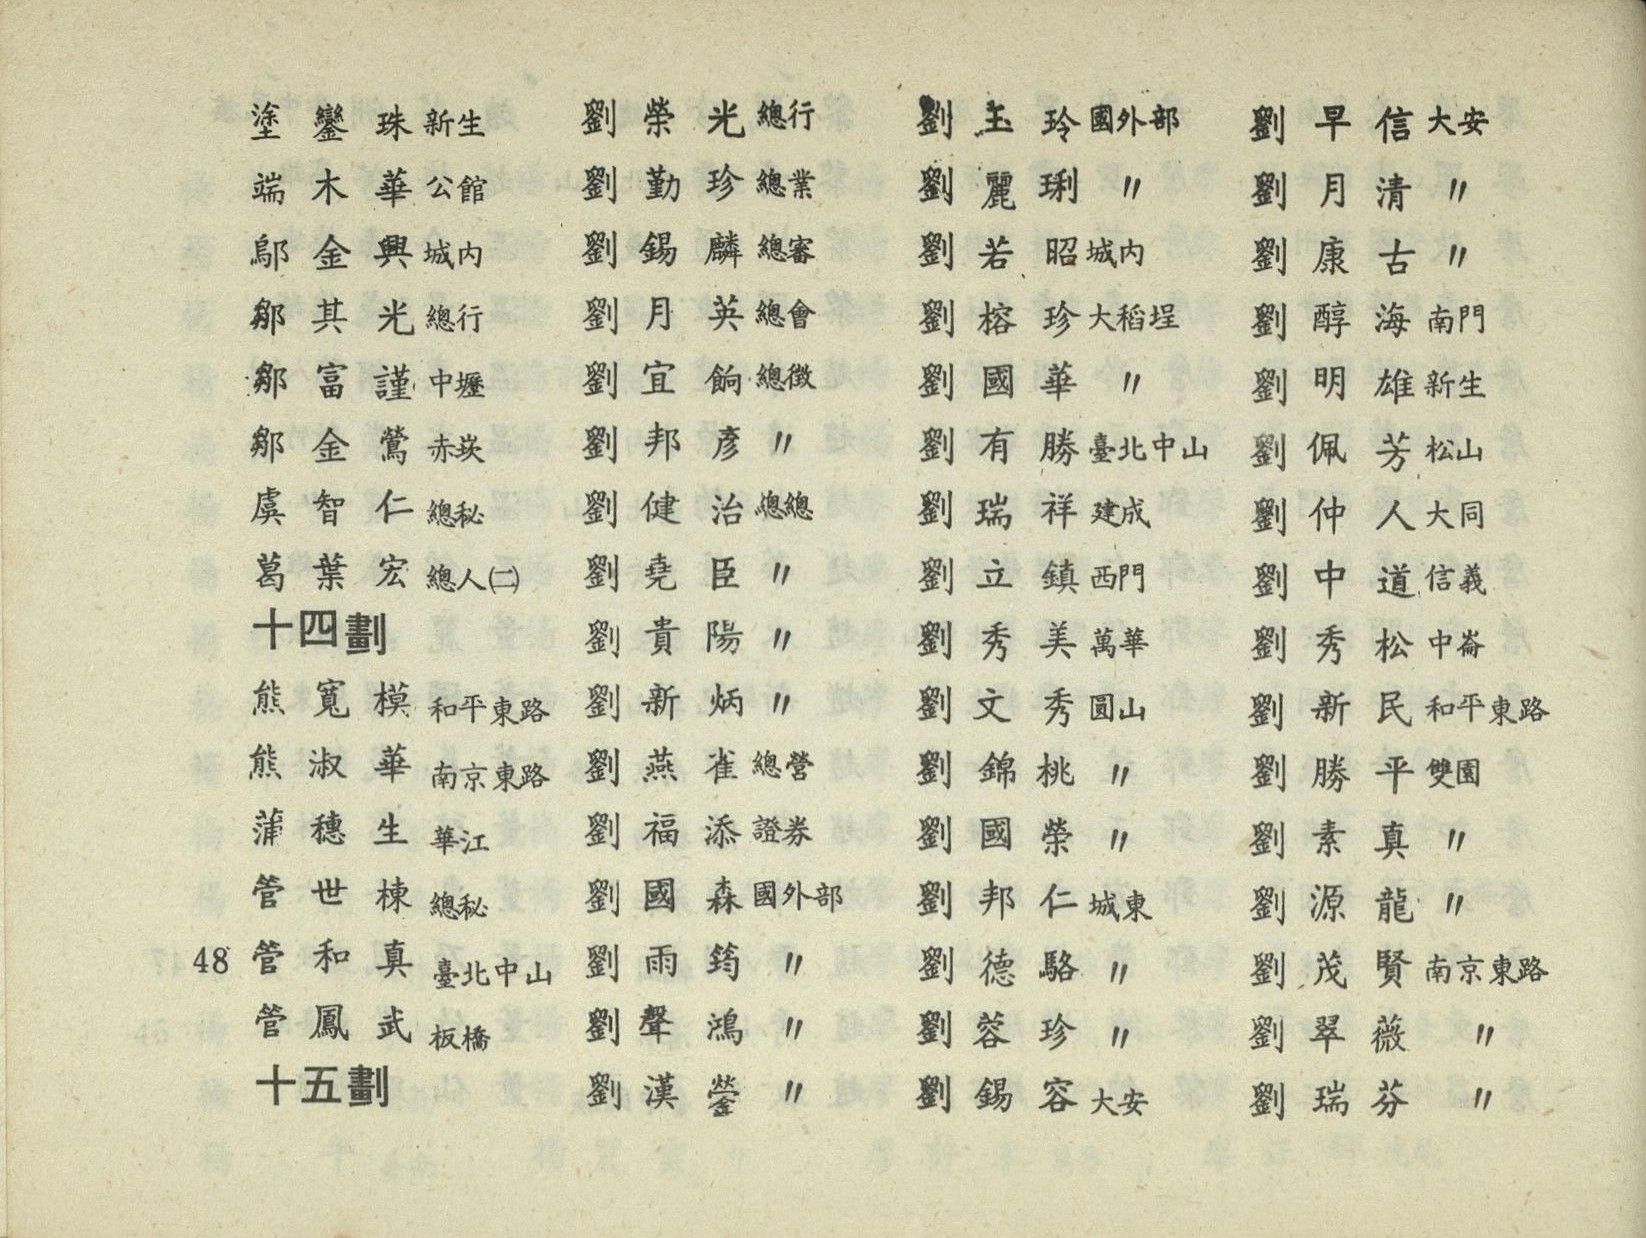 塗鑾珠 新生
端木華 公館
鄔金興 城内
鄒其光 總行
鄒富謹 中壢
鄒金鶯 赤崁
虞智仁 總秘
葛葉宏 總人㈡
十四劃
熊寬模 和平東路
熊淑華 南京東路
蒲穗生 華江
管世棟 總秘
48 管和真 臺北中山
管鳳武 板橋
十五劃
劉榮光 總行
劉勤珍 總業
劉錫麟 總審
劉月英 總會
劉宜餉 總徵
劉邦彥 〃
劉健治 總總
劉堯臣 〃
劉貴陽 〃
劉新炳 〃
劉燕雀 總營
劉福添 證券
劉國森 國外部
劉雨筠 〃
劉聲鴻 〃
劉漢蓥 〃
劉玉玲 國外部
劉麗琍 〃
劉若昭 城内
劉榕珍 大稻埕
劉國華 〃
劉有勝 臺北中山
劉瑞祥 建成
劉立鎮 西門
劉秀美 萬華
劉文秀 圓山
劉錦桃 〃
劉國榮 〃
劉邦仁 城東
劉德駱 〃
劉蓉珍 〃
劉錫容 大安
劉早信 大安
劉月清 〃
劉康古 〃
劉醇海 南門
劉明雄 新生
劉佩芳 松山
劉仲人 大同
劉中道 信義
劉秀松 中崙
劉新民 和平東路
劉勝平 雙園
劉素真 〃
劉源龍 〃
劉茂賢 南京東路
劉翠薇 〃
劉瑞芬 〃